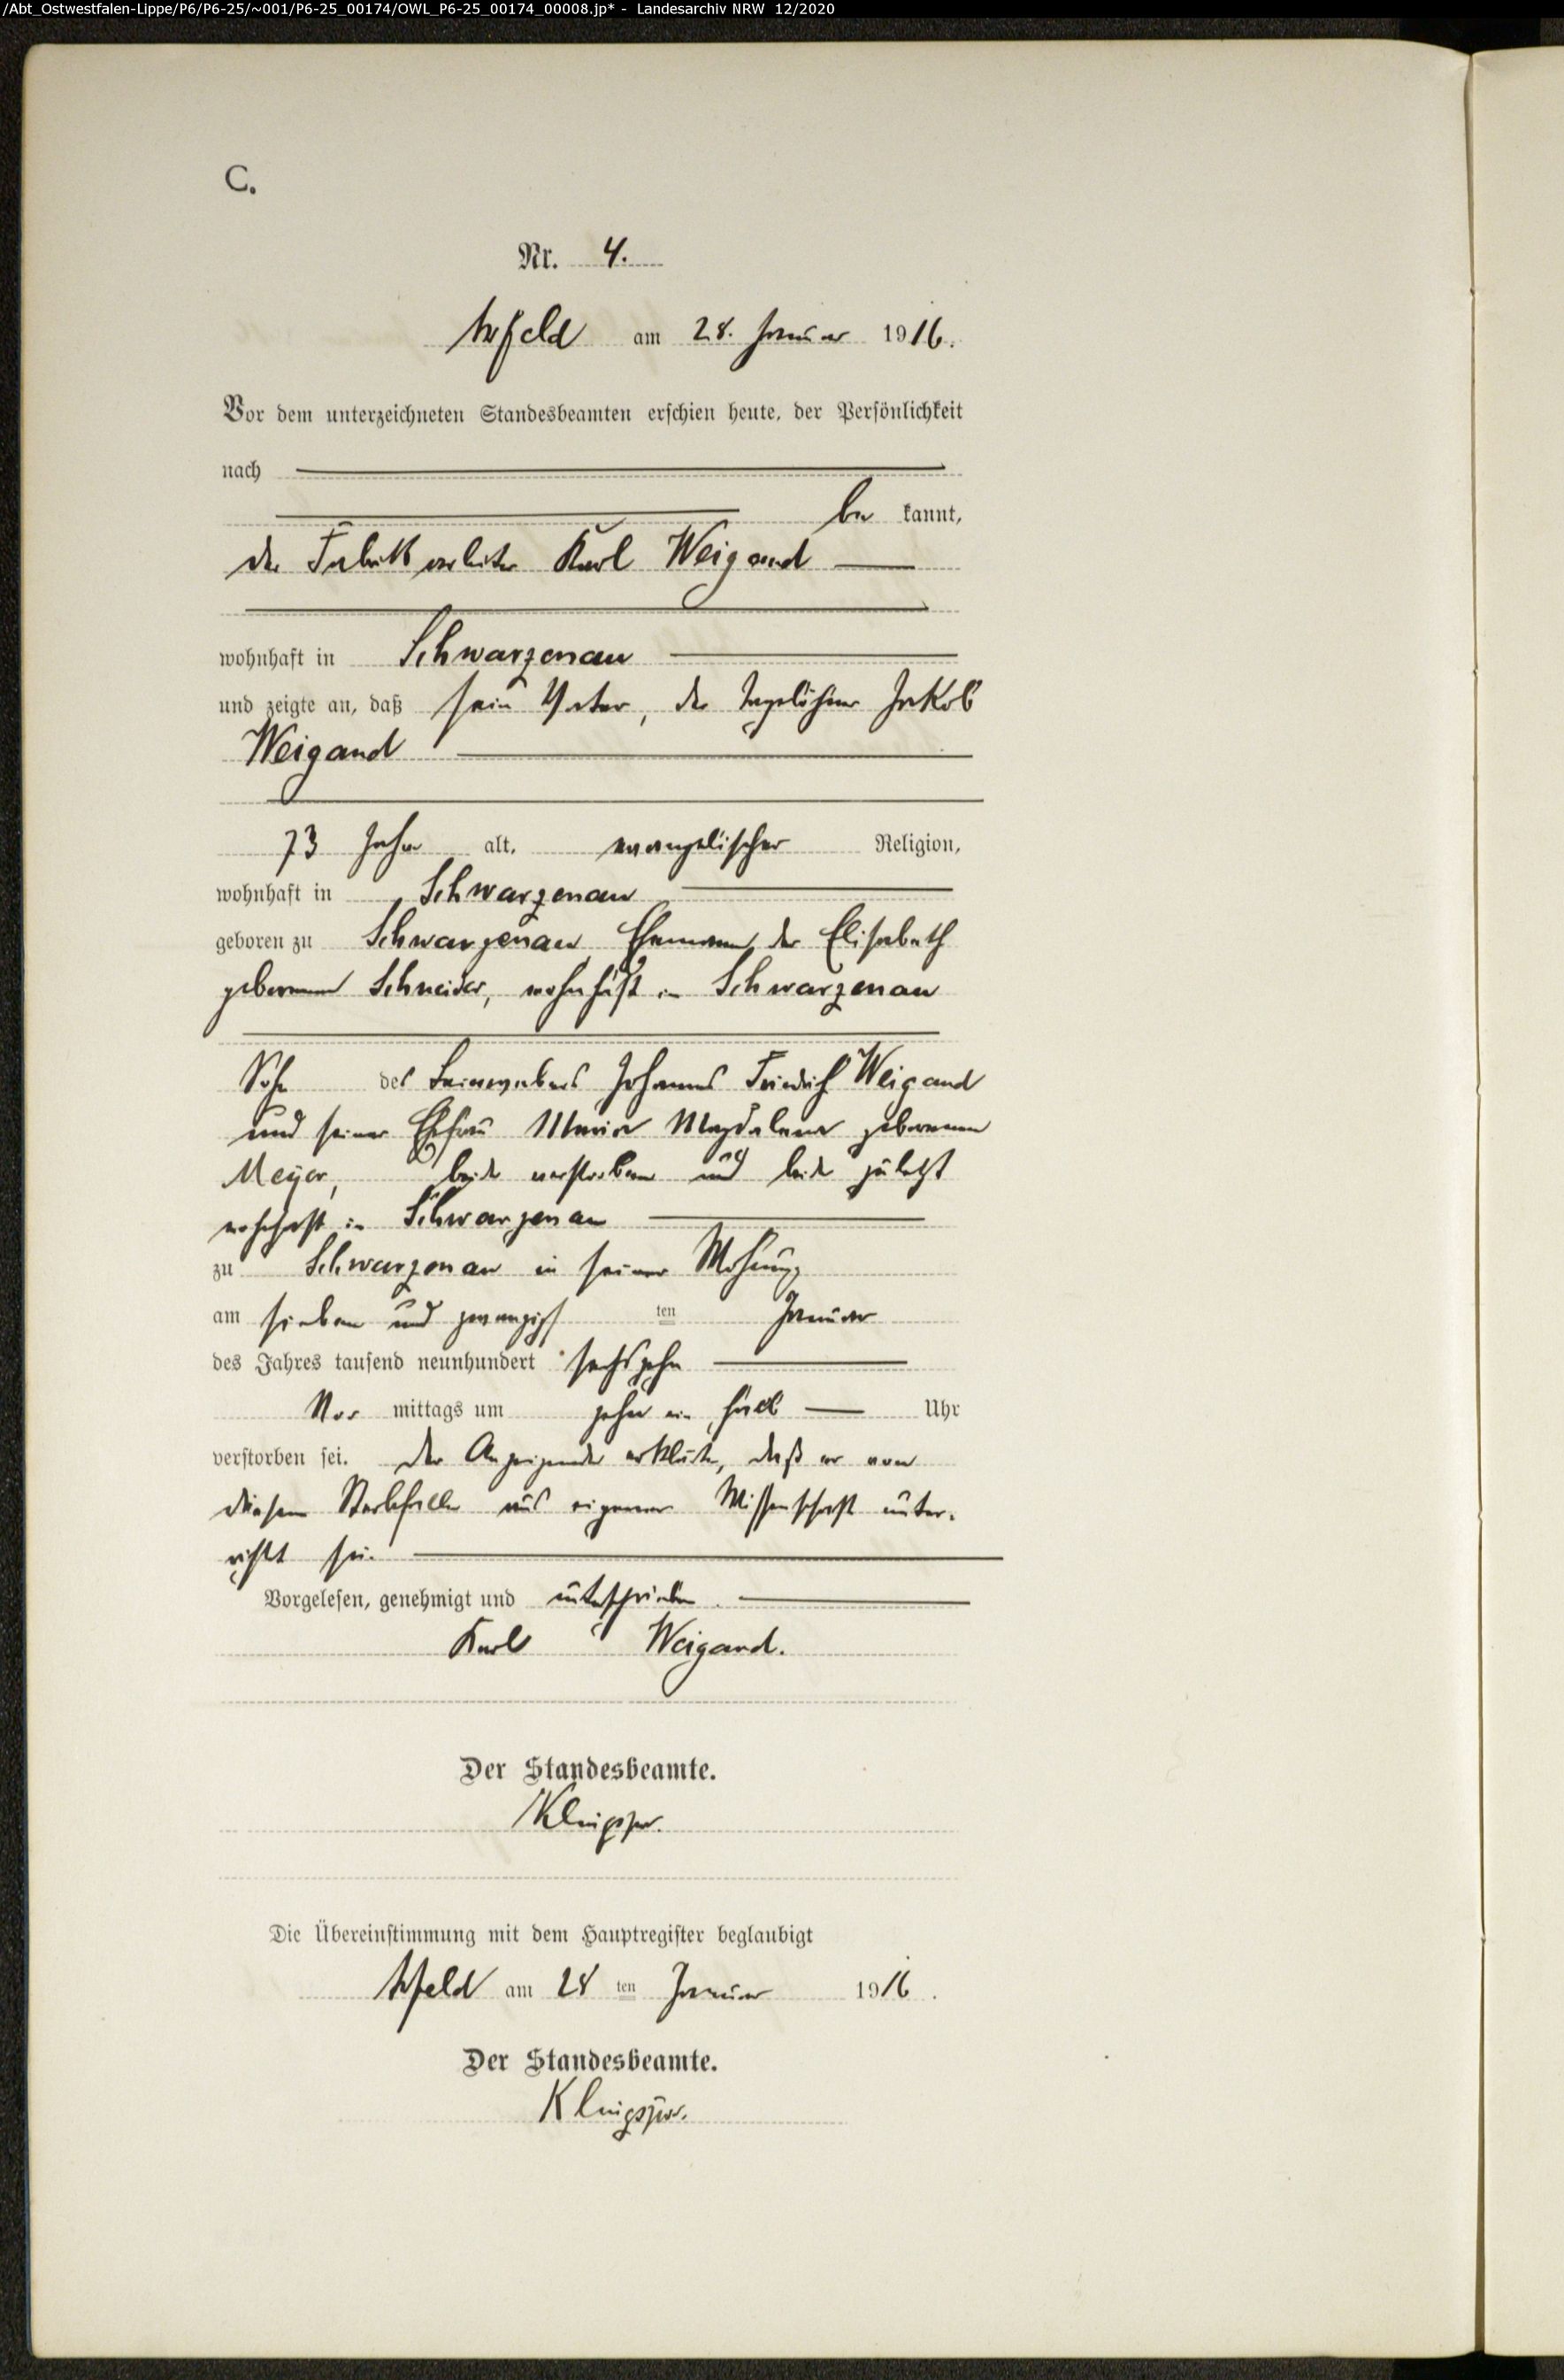 /Abt_Ostwestfalen-Lippe/P6/P6-25/~001/P6-25_00174/OWL_P6-25_00174_00008.jp* - Landesarchiv NRW 12/2020
C.
Nr. 4.
Arfeld am 28. Januar 1916.
Vor dem unterzeichneten Standesbeamten erschien heute, der Persönlichkeit
nach
be kannt,
der Fabrikarbeiter Karl Weigand
wohnhaft in Schwarzenau
und zeigte an, daß sein Vater, der Tagelöhner Jakob
Weigand
73 Jahre alt, evangelischer Religion,
wohnhaft in Schwarzenau
geboren zu Schwarzenau, Ehemann der Elisabeth
geborenen Schneider, wohnhaft in Schwarzenau
Sohn des Leinewebers Johannes Friedrich Weigand
und seiner Ehefrau Maria Magdalena geborenen
Meyer, beide verstorben und beide zuletzt
wohnhaft in Schwarzenau
zu Schwarzenau in seiner Wohnung
am sieben und zwanzigsten Januar
des Jahres tausend neunhundert sechszehn
Vor mittags um zehn ein halb Uhr
verstorben sei. Der Anzeigende erklärte, daß er von
diesem Sterbefalle aus eigener Wissenschaft unter-
richtet sei.
Vorgelesen, genehmigt und unterschrieben.
Karl Weigand.
Der Standesbeamte.
Klingspor.
Die Übereinstimmung mit dem Hauptregister beglaubigt
Arfeld am 28 ten Januar 1916.
Der Standesbeamte.
Klingspor.